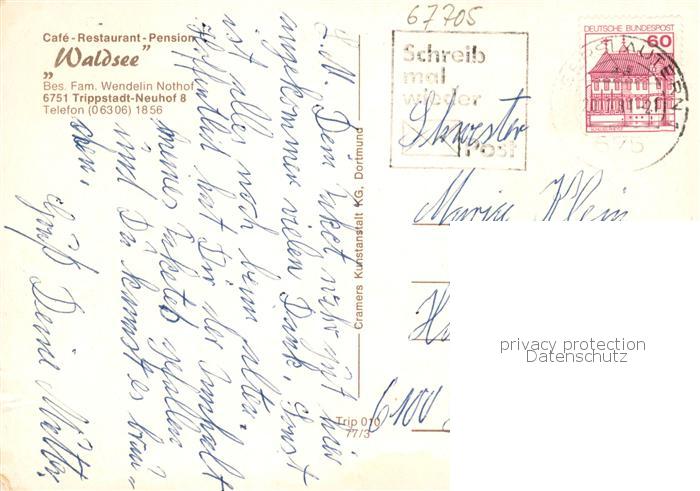 67705
Café - Restaurant - Pension
„Waldsee”
Bes. Fam. Wendelin Nothof
6751 Trippstadt-Neuhof 8
Telefon (06306) 1856
Schreib
mal
wieder
Post
DEUTSCHE BUNDESPOST
60
L. M. Dein Paket sehr gut hier
angekommen vielen Dank. Sonst
ist alles noch beim alten.
Hoffentlich hat Dir der Innhalt
meines Paketes gefallen
und Du kannst es brau-
chen.
Gruß Deine Mutter
Cramers Kunstanstalt KG, Dortmund
Trip 010
77/3
Schwester
Klein
6100
privacy protection
Datenschutz